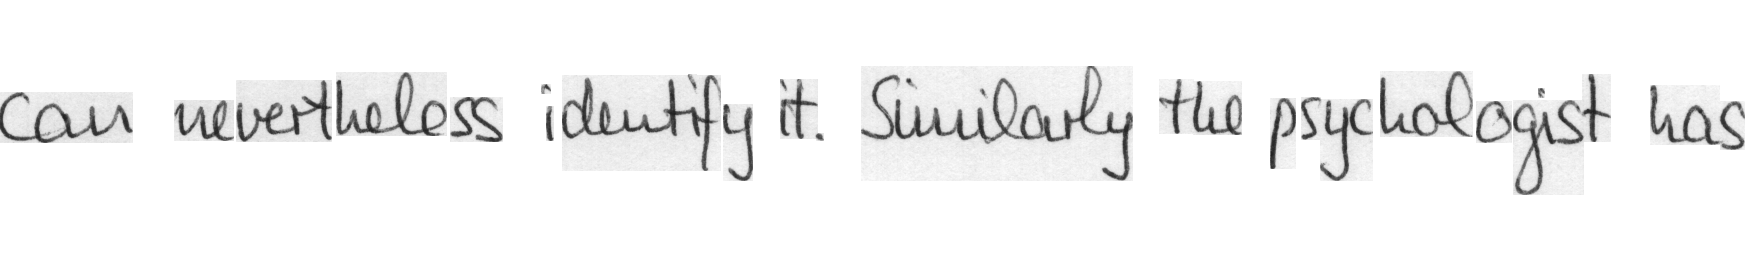 can nevertheless identify it. Similarly the psychologist has